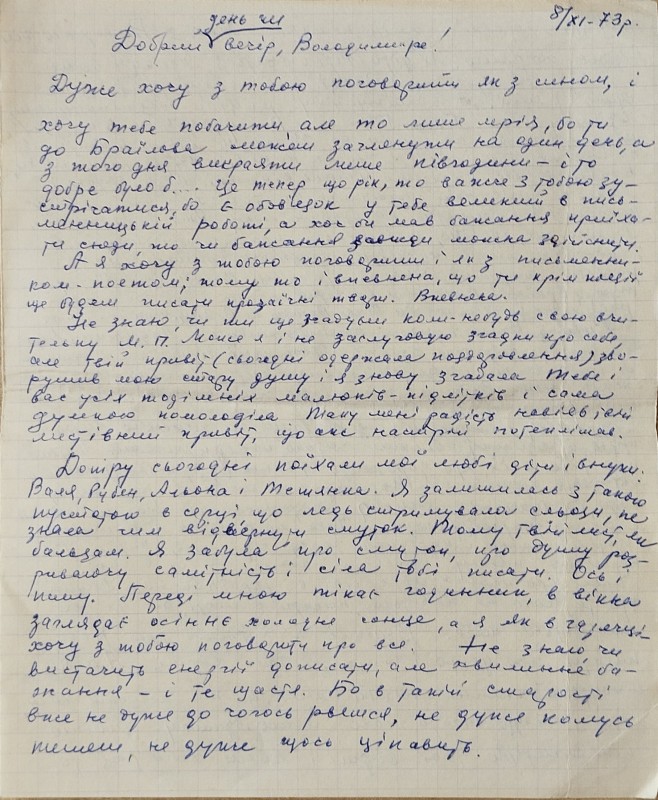 8/XI-73р.
день чи
Добрий вечір, Володимире!
Дуже хочу з тобою поговорити як з сином, і
хочу тебе побачити, але то лише мрія, бо ти
до Браїлова можеш заглянути на один день, а
з того дня викраяти лише півгодини – і то
добре було б... Це тепер що рік, то важче з тобою зу-
стрічатися, бо є обов'язок у тебе великий в пись-
менницькій роботі, а хоч би мав бажання приїха-
ти сюди, то чи бажання завжди можна здійснити.
А я хочу з тобою поговорити і як з письменни-
ком-поетом, тому що і впевнена, що ти крім поезій
ще будеш писати прозаїчні твори. Впевнена.
Не знаю, чи ти ще згадуєш коли-небудь свою вчи-
тельку М.П. Може я і не заслуговую згадки про себе,
але твій привіт (сьогодні одержала поздоровлення) зво-
рушив мою стару душу і я знову згадала Тебе і
вас усіх тодішніх малюків-підлітків і сама
думкою помолоділа. Таку мені радість навіяв твій
листівний привіт, що аж настрій потеплішав.
Допіру сьогодні поїхали мої любі діти і внуки:
Валя, Рубен, Альона і Тетянка. Я залишилась з такою
пустотою в серці, що ледь стримувала сльози, не
знала чим відвернути смуток. Тому твій лист, як
бальзам. Я забула про смуток, про душу роз-
риваючу самітність і сіла тобі писати. Ось і
пишу. Переді мною тікає годинник, в вікна
заглядає осіннє холодне сонце, а я як в гарячці
хочу з тобою поговорити про все. Не знаю чи
вистачить енергії дописати, але хвилинне ба-
жання – і те щастя. Бо в такій старості
вже не дуже до чогось рвешся, не дуже комусь
пишеш, не дуже щось цікавить.